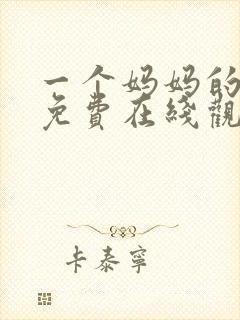 一个妈妈的
免費在綫觀
卡泰寧